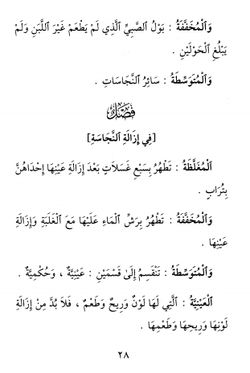 وَٱلْمُخَفَّفَةُ : بَوْلُ ٱلصَّبِيِّ ٱلَّذِي لَمْ يَطْعَمْ غَيْرَ ٱللَّبَنِ وَلَمْ
يَبْلُغِ ٱلْحَوْلَيْنِ .
وَٱلْمُتَوَسِّطَةُ : سَائِرُ ٱلنَّجَاسَاتِ .
فَصْلٌ
[فِي إِزَالَةِ ٱلنَّجَاسَةِ]
ٱلْمُغَلَّظَةُ : تَطْهُرُ بِسَبْعِ غَسَلَاتٍ بَعْدَ إِزَالَةِ عَيْنِهَا إِحْدَاهُنَّ
بِتُرَابٍ .
وَٱلْمُخَفَّفَةُ : تَطْهُرُ بِرَشِّ ٱلْمَاءِ عَلَيْهَا مَعَ ٱلْغَلَبَةِ وَإِزَالَةِ
عَيْنِهَا .
وَٱلْمُتَوَسِّطَةُ : تَنْقَسِمُ إِلَىٰ قِسْمَيْنِ : عَيْنِيَّةٌ ، وَحُكْمِيَّةٌ .
ٱلْعَيْنِيَّةُ : ٱلَّتِي لَهَا لَوْنٌ وَرِيحٌ وَطَعْمٌ ، فَلَا بُدَّ مِنْ إِزَالَةِ
لَوْنِهَا وَرِيحِهَا وَطَعْمِهَا .
٢٨